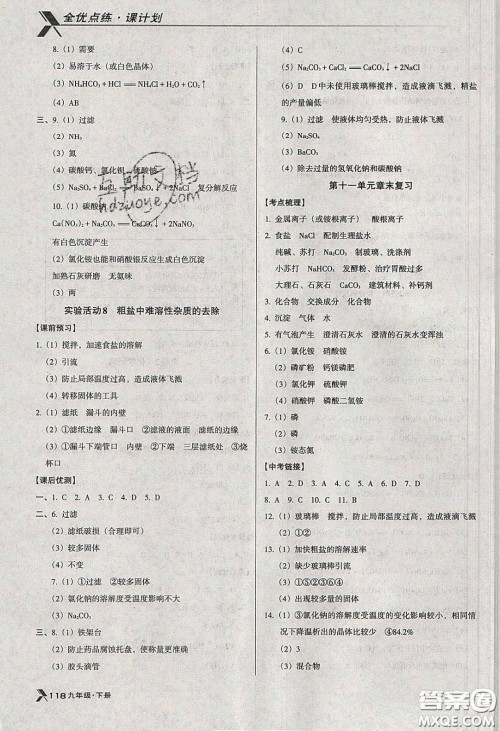 全优点练·课计划
8. (1) 需要
(2) 易溶于水（或白色晶体）
(3) NH₄HCO₃ + HCl ═ NH₄Cl + H₂O + CO₂↑
(4) AB
三、9. (1) 过滤
(2) NH₃
(3) 氮
(4) 碳酸钙、氯化钡
(5) Na₂SO₄ + BaCl₂ ═ BaSO₄↓ + 2NaCl 复分解反应
10. (1) 碳酸钠
Ca(NO₃)₂ + Na₂CO₃ ═ CaCO₃↓ + 2NaNO₃
有白色沉淀产生
(2) 氯化铵也能和硝酸银反应生成白色沉淀
加熟石灰研磨 无氨味
(3) 两
实验活动8 粗盐中难溶性杂质的去除
【课前预习】
1. (1) 搅拌，加速食盐的溶解
(2) 引流
(3) 防止局部温度过高，造成液体飞溅
(4) 转移固体的工具
2. (1) 滤纸 漏斗的内壁
(2) ①滤纸边缘 漏斗边缘 ②液面 滤纸边缘
(3) ①漏斗下端管口 内壁 ②下端 三层滤纸处 ③烧
杯口
【课后优测】
一、1. C 2. A 3. C 4. D 5. D
二、6. 过滤
(2) 滤纸破损（合理即可）
(3) 较多固体
(4) 不变
7. (1) ①过滤 ②较多固体
(2) 氯化钠的溶解度受温度影响不大
(3) Na₂CO₃
三、8. (1) 铁架台
(2) 防止药品腐蚀托盘、便于称量
(3) 胶头滴管
118 九年级·下册
(4) C
(5) Na₂CO₃ + CaCl₂ ═ CaCO₃↓ + 2NaCl
(6) D D中未使用玻璃棒搅拌，造成液滴飞溅，精盐
的产量偏低
9. (1) 使液体均匀受热，防止液滴飞溅
(2) Na₂SO₄
(3) BaCO₃
(4) 除去过量的氢氧化钠和碳酸钠
第十一单元章末复习
【考点梳理】
1. 金属离子（或铵根离子） 酸根离子
2. 食盐 NaCl 配制生理盐水
纯碱、苏打 Na₂CO₃ 制玻璃、洗涤剂
小苏打 NaHCO₃ 发酵粉、治疗胃酸过多
大理石、石灰石 CaCO₃ 建筑材料、补钙剂
3. 化合物 交换成分 化合物
4. 沉淀 气体 水
5. 有气泡产生 澄清石灰水 澄清石灰水变浑浊
6. (1) 氯化铵 硝酸铵
(2) 磷矿粉 钙镁磷肥
(3) 氯化钾 硫酸钾
(4) 硝酸钾 磷酸二氢铵
7. (1) 磷
(2) 磷
(3) 铵态氮
【中考链接】
1. A 2. D 3. D 4. B 5. C 6. A 7. C
8. B 9. C 10. C 11. A
12. (1) 玻璃棒 搅拌，防止局部温度过高，造成液滴飞溅
(2) ①②
13. (1) 加快粗盐的溶解速率
(2) 缺少玻璃棒引流
(3) ①⑤②④③⑥
(4) 出现较多量的固体
14. (1) ③氯化钠的溶解度受温度的变化影响较小，相同情况
下降温析出的晶体较少 ④84.2%
(2) 3
hdzuoye.com
答案圈
MXQE.COM